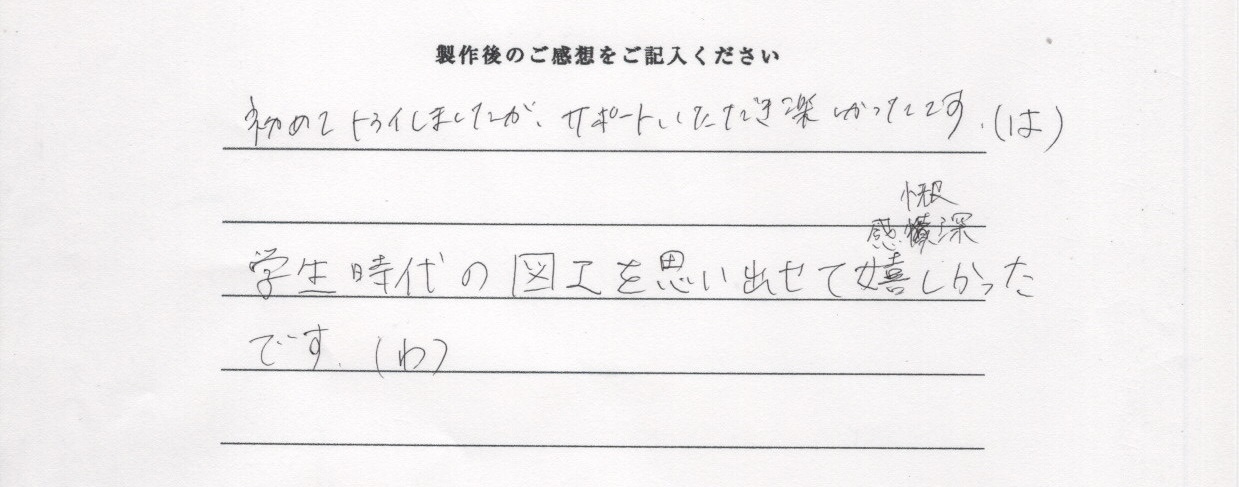 製作後のご感想をご記入ください
初めてトライしましたが、サポートいただき楽しかったです。(は)
感 深
学生時代の図工を思い出せて嬉しかった
です。(わ)